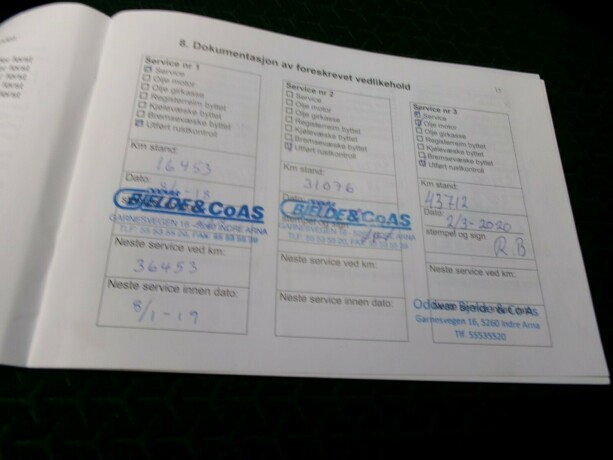 8. Dokumentasjon av foreskrevet vedlikehold
Service nr 1
Service
Olje motor
Olje girkasse
Registerreim byttet
Kjølevæske byttet
Bremsevæske byttet
Utført rustkontroll
Km stand:
16453
Dato:
8/1-18
BJELDE & CO AS
GARNESVEGEN 16 - 5260 INDRE ARNA
Neste service ved km:
36453
Neste service innen dato:
8/1-19
Service nr 2
Service
Olje motor
Olje girkasse
Registerreim byttet
Kjølevæske byttet
Bremsevæske byttet
Utført rustkontroll
Km stand:
31096
Dato:
BJELDE & CO AS
stempel og sign
GARNESVEGEN 16
Neste service ved km:
Neste service innen dato:
17
Service nr 3
Service
Olje motor
Olje girkasse
Registerreim byttet
Kjølevæske byttet
Bremsevæske byttet
Utført rustkontroll
Km stand:
43712
Dato:
2/3-2020
stempel og sign
R.B
Neste service ved km:
Oddvar Bjelde & Co As
Garnesvegen 16, 5260 Indre Arna
Tlf. 55535520